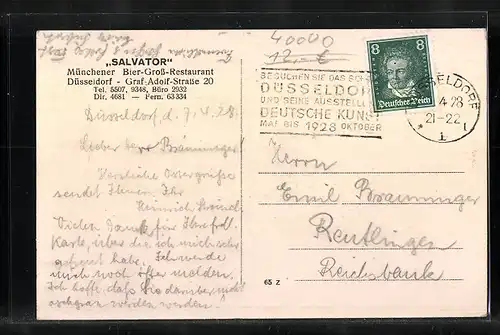 40000
12,- €
„SALVATOR"
Münchener Bier-Groß-Restaurant
Düsseldorf - Graf-Adolf-Straße 20
Tel. 5507, 9348, Büro 2932
Dir. 4681 — Fern. 63334
8 8
Deutsches Reich
BESUCHEN SIE DAS
DÜSSELDORF
UND SEINE AUSSTELL
DEUTSCHE KUNST
MAI BIS 1928 OKTOBER
4.28
21-22
Düsseldorf, d. 7.4.28.
Lieber Herr Bräuninger!
Herzliche Ostergrüße
sendet Ihnen, Ihr
Heinrich
Vielen Dank für Ihre frdl.
Karte, über die ich mich sehr
gefreut habe. Ich werde
mich noch öfter melden.
Ich hoffe, daß Sie darüber nicht
werden werden!
Herrn
Emil Braeuninger
Reutlingen
Reichsbank
65 Z